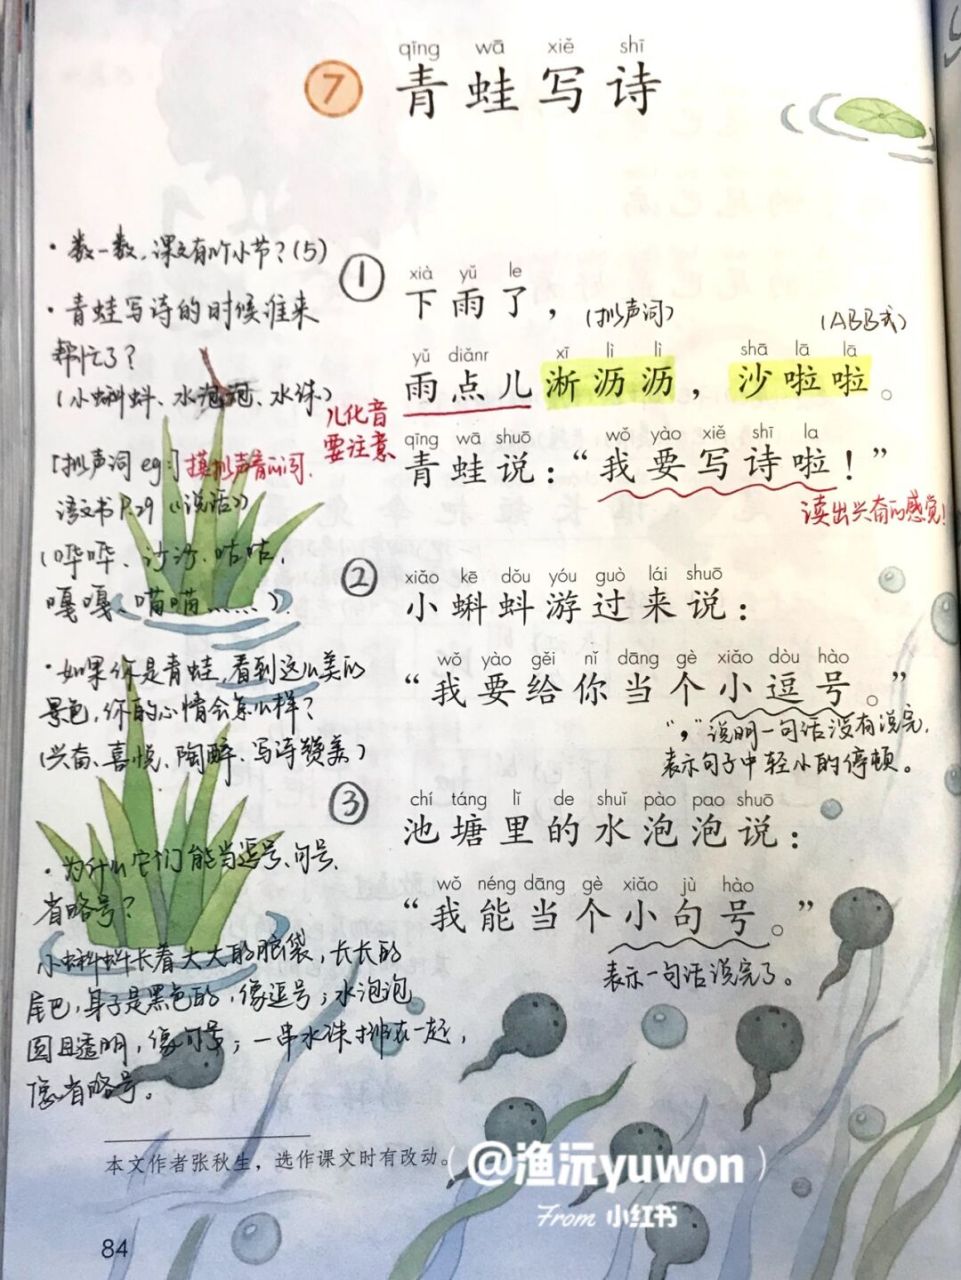 qīng wā xiě shī
7 青蛙写诗
· 数一数,课文有几个小节?(5)
· 青蛙写诗的时候谁来
帮忙了?
(小蝌蚪、水泡泡、水珠)
[拟声词 eg:]摸拟声音的词.
语文书P.29《说话》
(哗哗、沙沙、咕咕、
嘎嘎、喵喵……).
· 如果你是青蛙,看到这么美的
景色,你的心情会怎么样?
(兴奋、喜悦、陶醉、写诗赞美)
· 为什么它们能当逗号、句号、
省略号?
小蝌蚪长着大大的脑袋,长长的
尾巴,身子是黑色的,像逗号;水泡泡
圆且透明,像句号;一串水珠排在一起,
像省略号。
①
xià yǔ le
下雨了,
(拟声词)
(ABB式)
yǔ diǎnr xī lì lì shā lā lā
雨点儿淅沥沥,沙啦啦。
儿化音
要注意
qīng wā shuō wǒ yào xiě shī la
青蛙说:“我要写诗啦!”
读出兴奋的感觉!
②
xiǎo kē dǒu yóu guò lái shuō
小蝌蚪游过来说:
wǒ yào gěi nǐ dāng gè xiǎo dòu hào
“我要给你当个小逗号。”
“,”说明一句话没有说完,
表示句子中轻小的停顿。
③
chí táng lǐ de shuǐ pào pao shuō
池塘里的水泡泡说:
wǒ néng dāng gè xiǎo jù hào
“我能当个小句号。”
表示一句话说完了。
本文作者张秋生,选作课文时有改动。
84
(@渔沅yuwon)
From 小红书